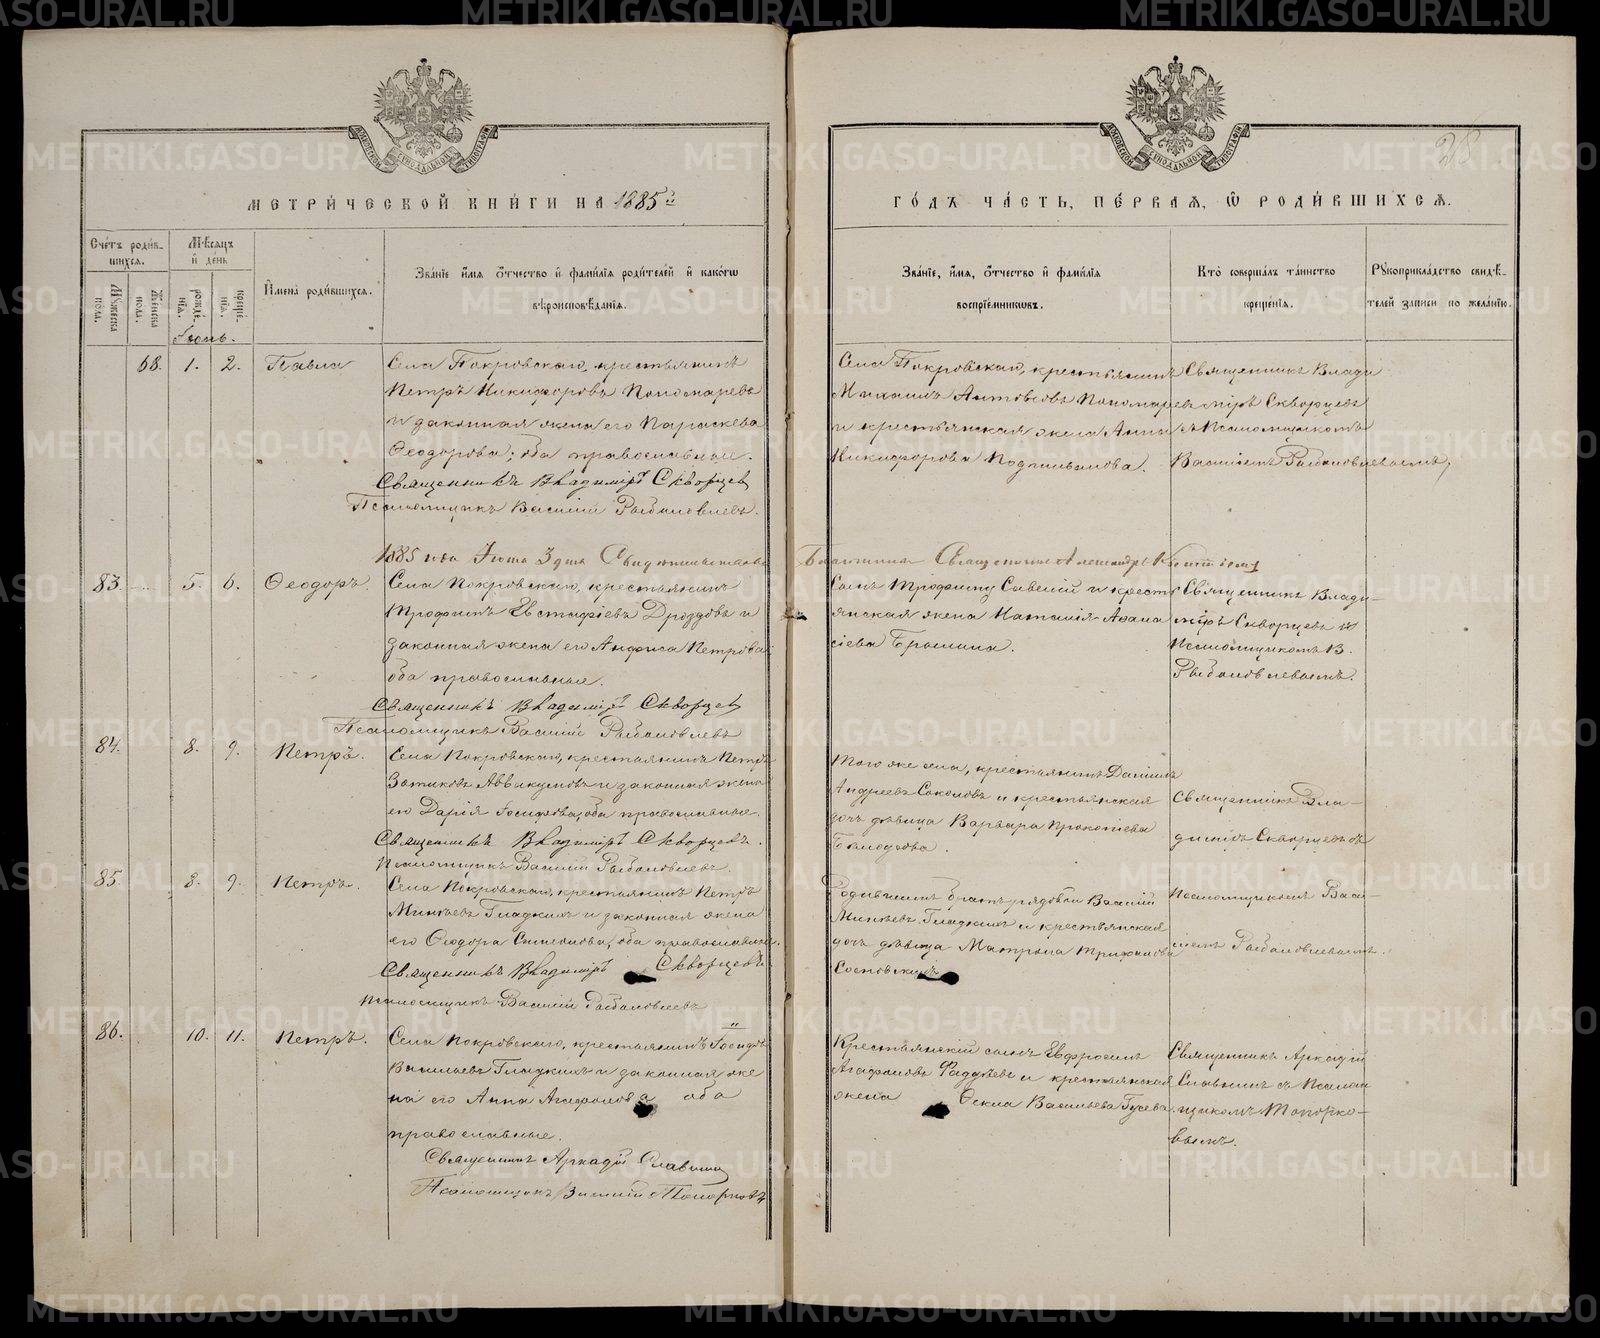 METRIKI.GASO-URAL.RU
МЕТРИ́ЧЕСКОЙ КНИ́ГИ НА 1885й
ГО́ДЪ ЧА́СТЬ, ПЕ́РВАЯ, Ѡ РОДИ́ВШИХСЯ.
28
Счетъ родив-
шихся.
Мѣсяцъ
и день
Мужеска
пола.
Женска
пола.
рожде-
нія.
креще-
нія.
Имена родившихся.
Званіе имя отчество и фамилія родителей и какогѡ
вѣроисповѣданія.
Званіе, имя, отчество и фамилія
воспріемникѡвъ.
Кто совершалъ таинство
крещенія.
Рукоприкладство свидѣ-
телей записи по желанію.
Іюнь.
68. 1. 2. Павла
Села Покровскаго, крестьянинъ
Петръ Никифоровъ Пономаревъ
и законная жена его Параскева
Ѳеодорова; оба православные.
Священникъ Владиміръ Скворцев
Псаломщикъ Василій Рыболовлевъ.
Села Покровскаго, крестьянинъ
Михаилъ Антоновъ Пономаревъ
и крестьянская жена Анна
Никифорова
Священникъ Влади
міръ Скворцевъ
съ Псаломщикомъ
Василіемъ Рыболовлевымъ,
1885 года 3 дня
Священникъ Александръ
83. 5. 6. Ѳеодоръ.
Села Покровскаго, крестьянинъ
Трофимъ Евстафіевъ Дроздовъ и
законная жена его Анфиса Петрова
оба православные.
Священникъ Владиміръ Скворцев
Псаломщикъ Василій Рыболовлевъ
и кресть
янская жена Наталія Афана
сіева
Священникъ Влади-
міръ Скворцевъ и
Псаломщикомъ В.
Рыболовлевымъ.
84. 8. 9. Петръ.
Села Покровскаго, крестьянинъ Петръ
Аввакумовъ и законная жена
его Дарія оба православные.
Священникъ Владиміръ Скворцевъ.
Псаломщикъ Василій Рыболовлевъ.
Того же села, крестьянинъ Даніилъ
Андреевъ Соколовъ и крестьянская
дочь дѣвица Варвара Прокопіева
Священникъ Вла-
диміръ Скворцевъ съ
85. 8. 9. Петръ.
Села Покровскаго, крестьянинъ Петръ
Минѣевъ Гладкихъ и законная жена
его Ѳеодора Симеонова, оба православные.
Священникъ Владиміръ Скворцевъ
Псаломщикъ Василій Рыболовлевъ
братъ рядовой Василій
Минѣевъ Гладкихъ и крестьянская
дочь дѣвица Матрона Трифонова
Псаломщикомъ Васи-
ліемъ Рыболовлевымъ.
86. 10. 11. Петръ.
Села Покровскаго, крестьянинъ Іосифъ
Васильевъ Гладкихъ и законная же
на его Анна Агафонова оба
православные.
Священникъ Аркадій Славнинъ
Псаломщикъ Василій Топорковъ
Крестьянскій сынъ Евфросинъ
Агафоновъ Фаддѣевъ и крестьянская
жена Ѳекла Васильева Гусева.
Священникъ Аркадій
Славнинъ съ Псалом
щикомъ Топорко-
вымъ.